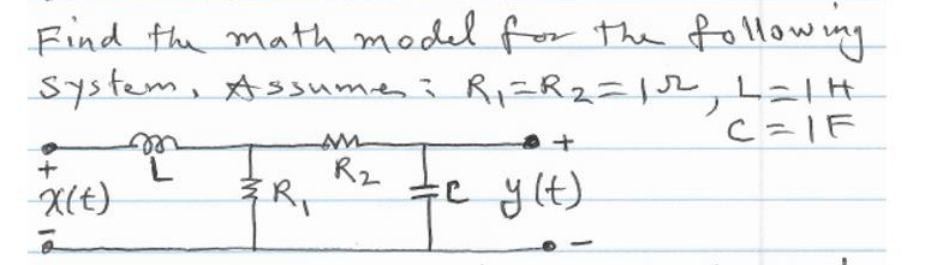 Find the math model for the following
system, Assume: R₁=R₂=1Ω, L=1H
C=1F
+ L R₂ +
x(t) R₁ C y(t)
- -